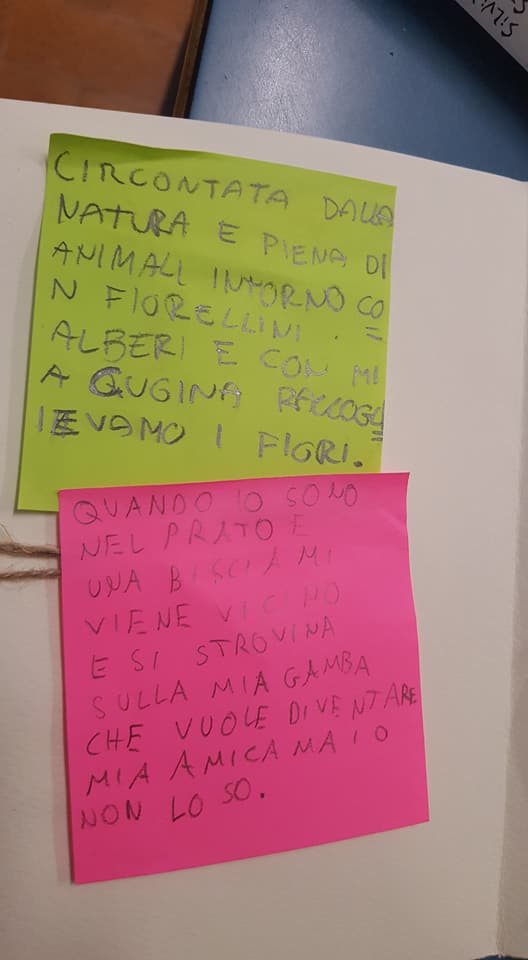 CIRCONTATA DALLA
NATURA E PIENA DI
ANIMALI INTORNO CO
N FIORELLINI. =
ALBERI E CON MI
A CUGINA RACCOGL
IEVAMO I FIORI. =
QUANDO IO SONO
NEL PRATO E
UNA BISCIA MI
VIENE VICINO
E SI STROVINA
SULLA MIA GAMBA
CHE VUOLE DIVENTARE
MIA AMICA MA IO
NON LO SO.